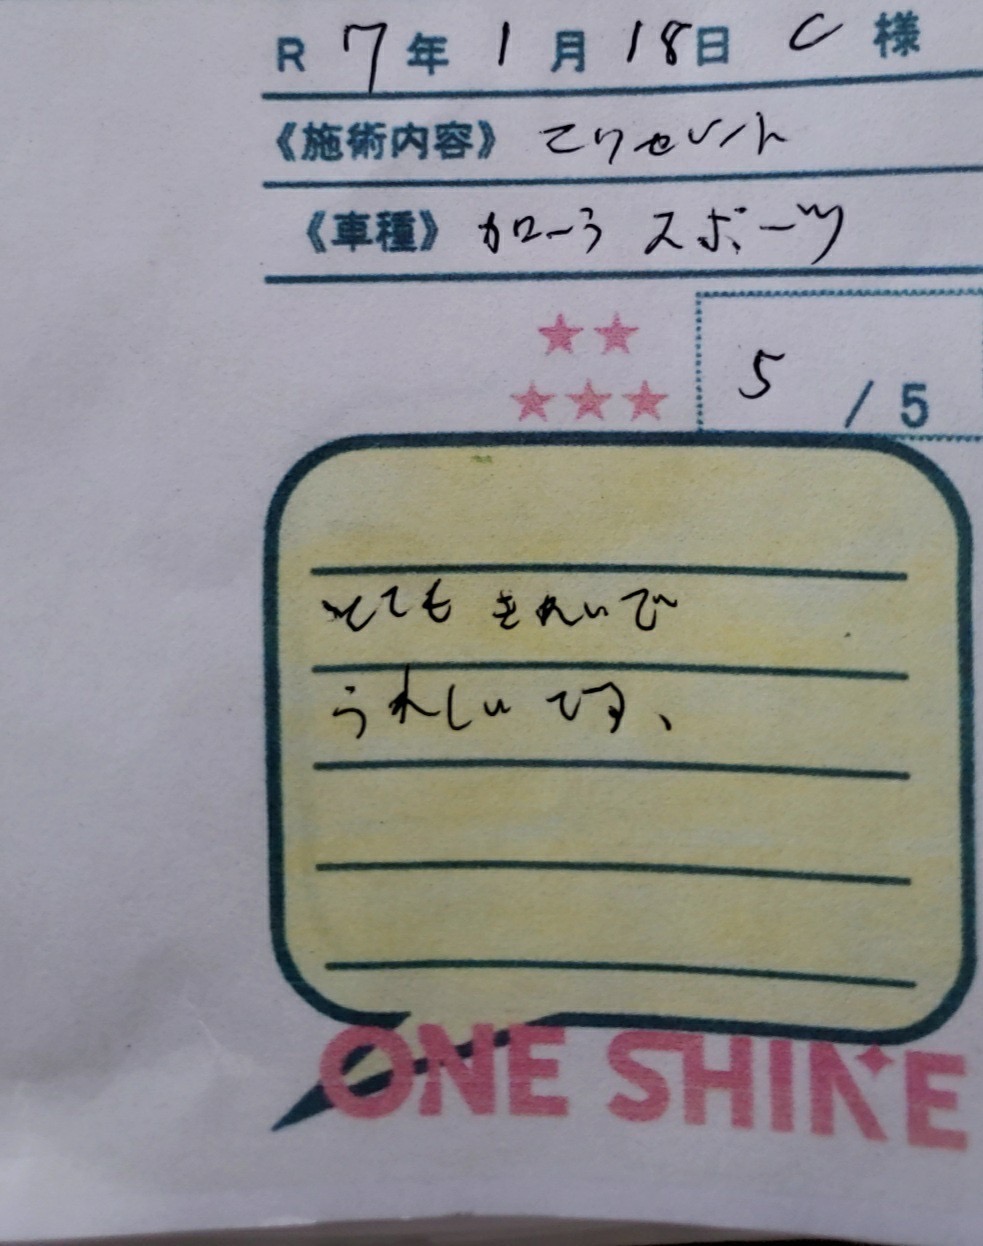 R 7年 1月 18日 C 様
《施術内容》 エクセレント
《車種》 カローラ スポーツ
5 / 5
とても きれいで
うれしいです、
ONE SHINE